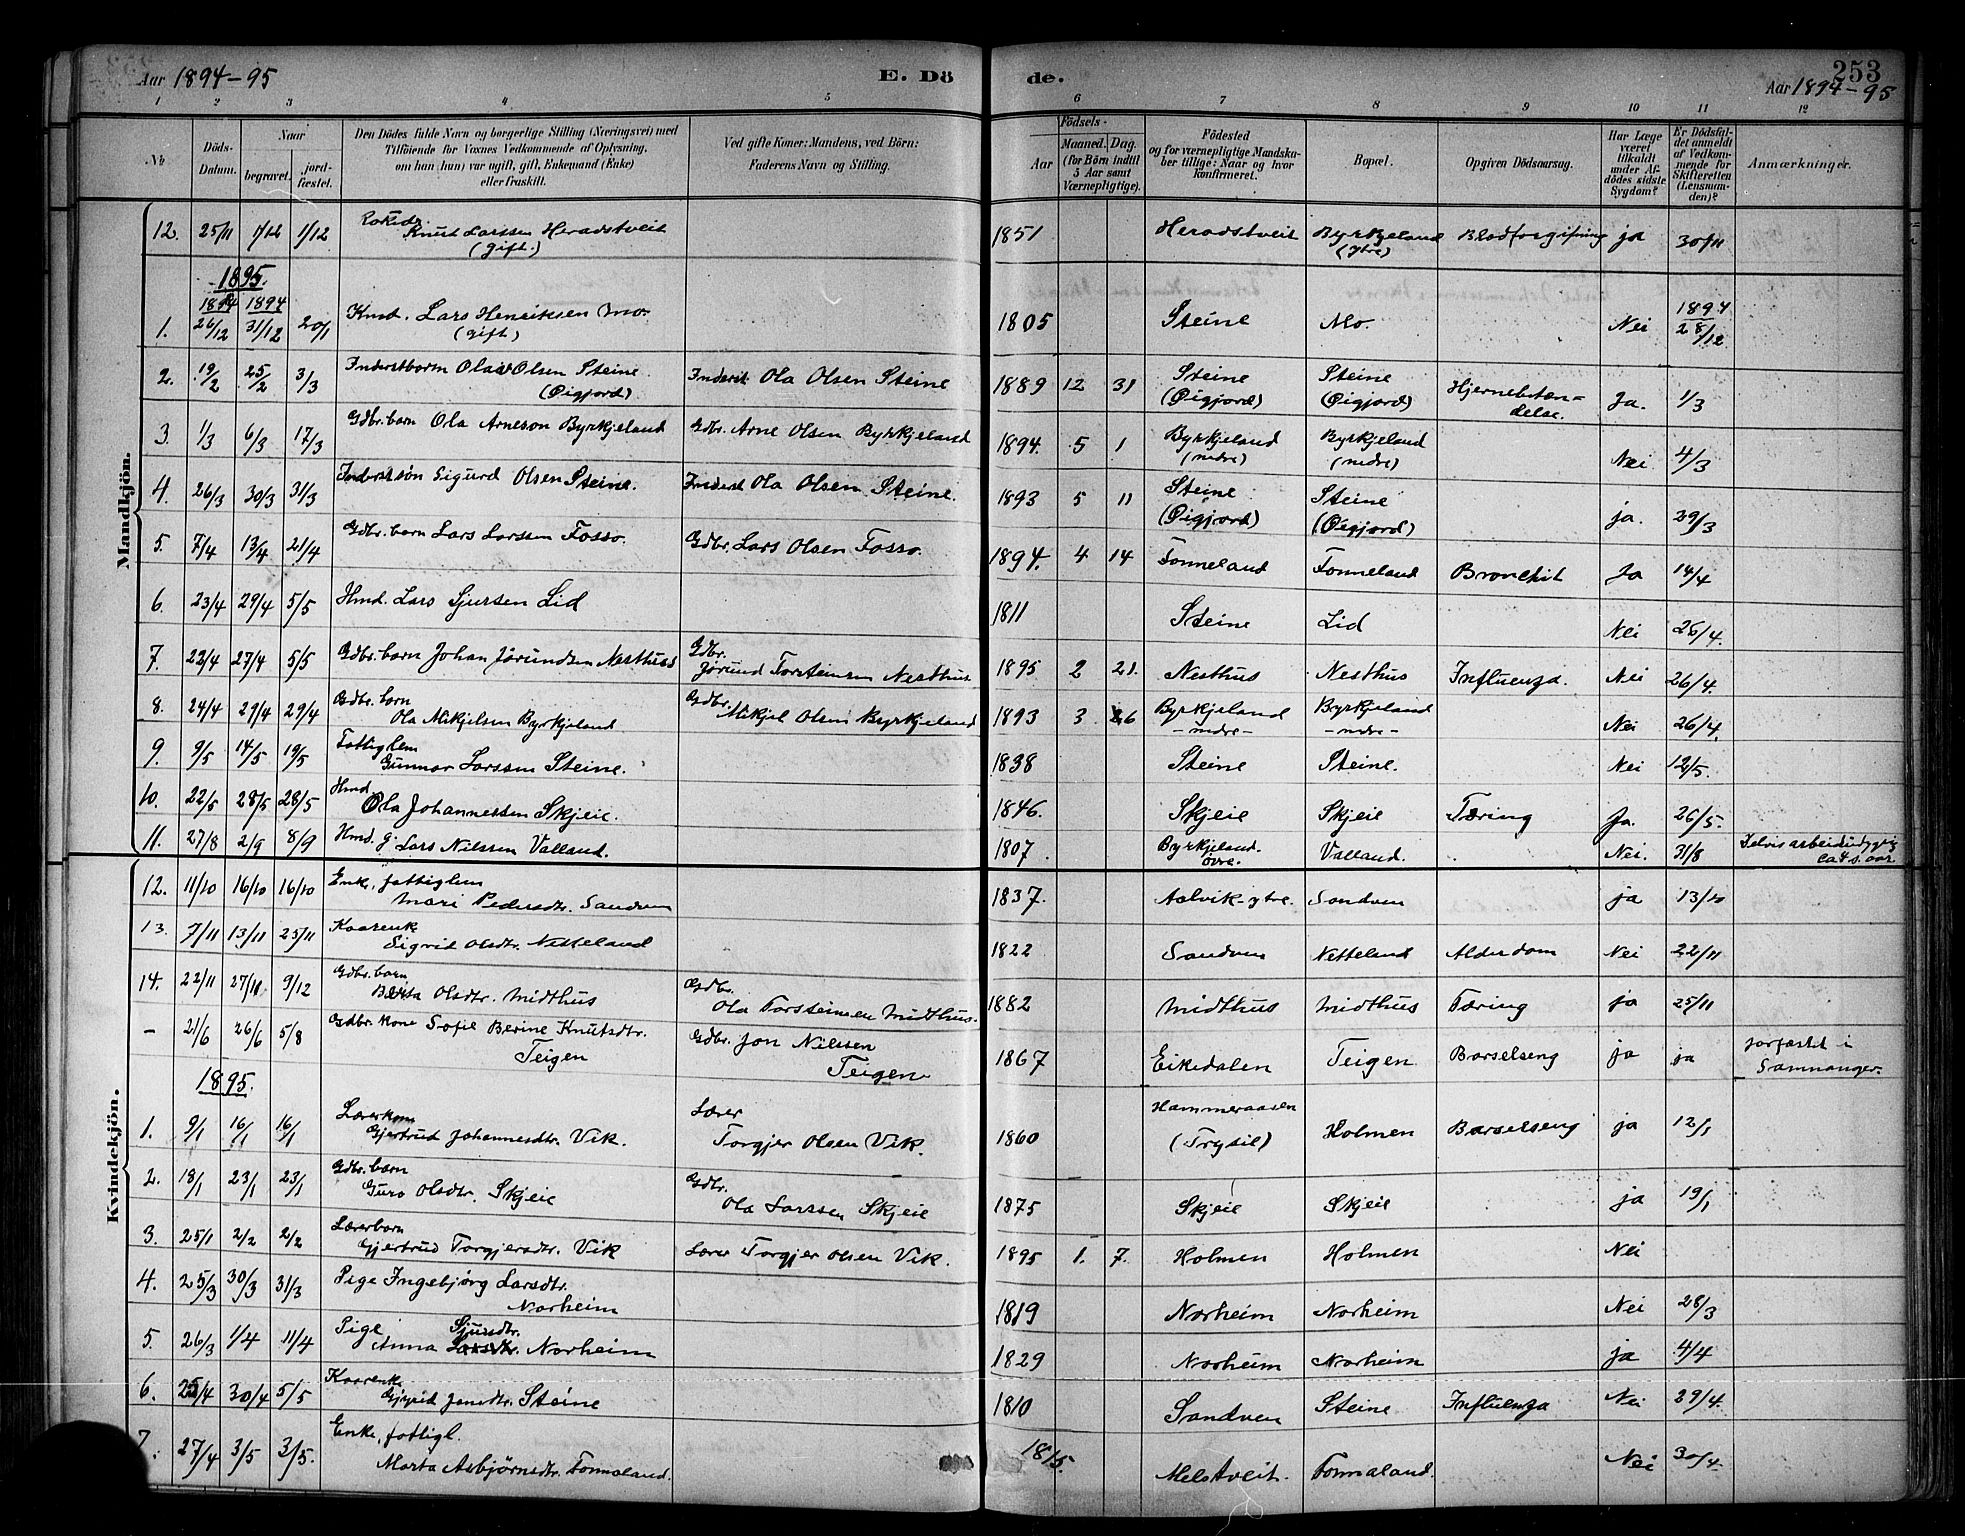 Aar 1894-95 E. Dö de. 253
Aar 1894-95
1 2 3 4 5 6 7 8 9 10 11 12
No. Döds-Datum. Naar begravet. jordfæstet. Den Dödes fulde Navn og borgerlige Stilling (Næringsvei) med Tilföiende for Voxnes Vedkommende af Oplysning, om han (hun) var ugift, gift, Enkemand (Enke) eller fraskilt. Ved gifte Koner: Mandens, ved Börn: Faderens Navn og Stilling. Födsels- Aar Maaned. Dag. (for Börn indtil 5 Aar samt Værnepligtige). Födested og for værnepligtige Mandskaber tillige: Naar og hvor konfirmeret. Bopæl. Opgiven Dödsaarsag. Har Læge været tilkaldt under Afdödes sidste Sygdom? Er Dödsfaldet anmeldt af Vedkommende for Skifteretten (Lensmanden)? Anmærkninger.
Mandkjön.
12. 25/11 1/12 1/12 Knut Larssen Heradstveit (gift.) 1851 Heradstveit Byrkjeland (Ytre) Blodforgiftning ja 30/11
1895.
1. 1894 26/12 1894 31/12 20/1 Kmd. Lars Henrikssen Mo. (gift) 1805 Steine Mo. Nei 1894 28/12
2. 19/2 25/2 3/3 Inderstbarn Olav Olsen Steine (Øigjord) Inderst Ola Olsen Steine 1889 12 31 Steine (Øigjord) Steine (Øigjord) Hjernebetændelse. Ja. 1/3
3. 1/3 6/3 17/3 Gdbr. barn Ola Arneson Byrkjeland Gdbr. Arne Olsen Byrkjeland 1894. 5 1 Byrkjeland (nedre) Byrkjeland (nedre) Nei 4/3
4. 26/3 30/3 31/3 Inderstsøn Sigurd Olsen Steine. Inderst Ola Olsen Steine. 1893 5 11 Steine (Øigjord) Steine (Øigjord) ja. 29/3
5. 7/4 13/4 21/4 Gdbr. barn Lars Larssen Fosso. Gdbr. Lars Olsen Fosso. 1894. 4 14 Tonneland Tonneland Bronchit Ja 14/4
6. 23/4 29/4 5/5 Hmd. Lars Sjursen Lid 1811 Steine Lid Nei 26/4.
7. 22/4 27/4 5/5 Gdbr. barn Johan Jörundsen Nesthus Gdbr. Jörund Torsteinsen Nesthus 1895 2 21. Nesthus Nesthus Influenza. Nei 26/4.
8. 24/4 29/4 29/4 Gdbr. barn Ola Mikjelsen Byrkjeland Gdbr. Mikjel Olsen Byrkjeland 1893 3 26 Byrkjeland -nedre- Byrkjeland -nedre- Nei 26/4.
9. 9/5 14/5 19/5 Fattiglem Gunnar Larssen Steine. 1838 Steine Steine. Nei 12/5.
10. 22/5 28/5 28/5 Hmd Ola Johannessen Skjeie. 1846. Skjeie Skjeie Tæring Ja. 26/5.
11. 27/8 2/9 8/9 Hmd. g. Lars Nilssen Valland. 1807. Byrkjeland. övre. Valland. Nei. 31/8 Delvis arbeidsudygtig ca 4 s. aar
Kvindekjön.
12. 11/10 16/10 16/10 Enke, fattiglem Mari Pedersdtr. Sandven 1837. Aalvik-ytre. Sandven ja 13/10
13. 7/11 13/11 23/11 Kaarenk Sigrid Olsdtr. Netteland 1822 Sandven Netteland Alderdom Nei 22/11
14. 22/11 27/11 9/12 Gdbr. barn Brita Olsdtr. Midthus Gdbr. Ola Torsteinsen Midthus. 1882 Midthus Midthus Tæring ja 25/11
- 21/6 26/6 5/8 Gdbr. kone Sofie Berine Knutsdtr. Teigen Gdbr. Jon Nilssen Teigen 1867 Eikedalen Teigen Barselseng ja ja jorfæstet i Samnanger.
1895.
1. 9/1 16/1 16/1 Lærerkone Gjertrud Johannesdtr. Vik. Lærer Torgjer Olsen Vik. 1860 Hammeraasen (Trysil) Holmen Barselseng ja 12/1
2. 18/1 23/1 23/1 Gdbr. barn Guro Olsdtr. Skjeie Gdbr. Ola Larssen Skjeie 1875 Skjeie Skjeie ja 19/1
3. 25/1 2/2 2/2 Lærerbarn Gjertrud Torgjersdtr. Vik Lærer Torgjer Olsen Vik. 1895 1. 7. Holmen Holmen Nei
4. 25/3 30/3 31/3 Pige Ingebjörg Larsdtr. Norheim 1819 Norheim Norheim Nei 28/3
5. 26/3 1/4 11/4 Pige Anna Sjursdtr. Norheim 1829 Norheim Norheim ja 4/4
6. 25/4 30/4 5/5 Kaarenk Jonsdtr. Steine 1810 Sandven Steine Influenza Nei 29/4
7. 27/4 3/5 3/5. Enke, fattigl. Marta Asbjörnsdtr. Tonnaland. 1815. Melstveit. Tonnaland. Nei 30/4.